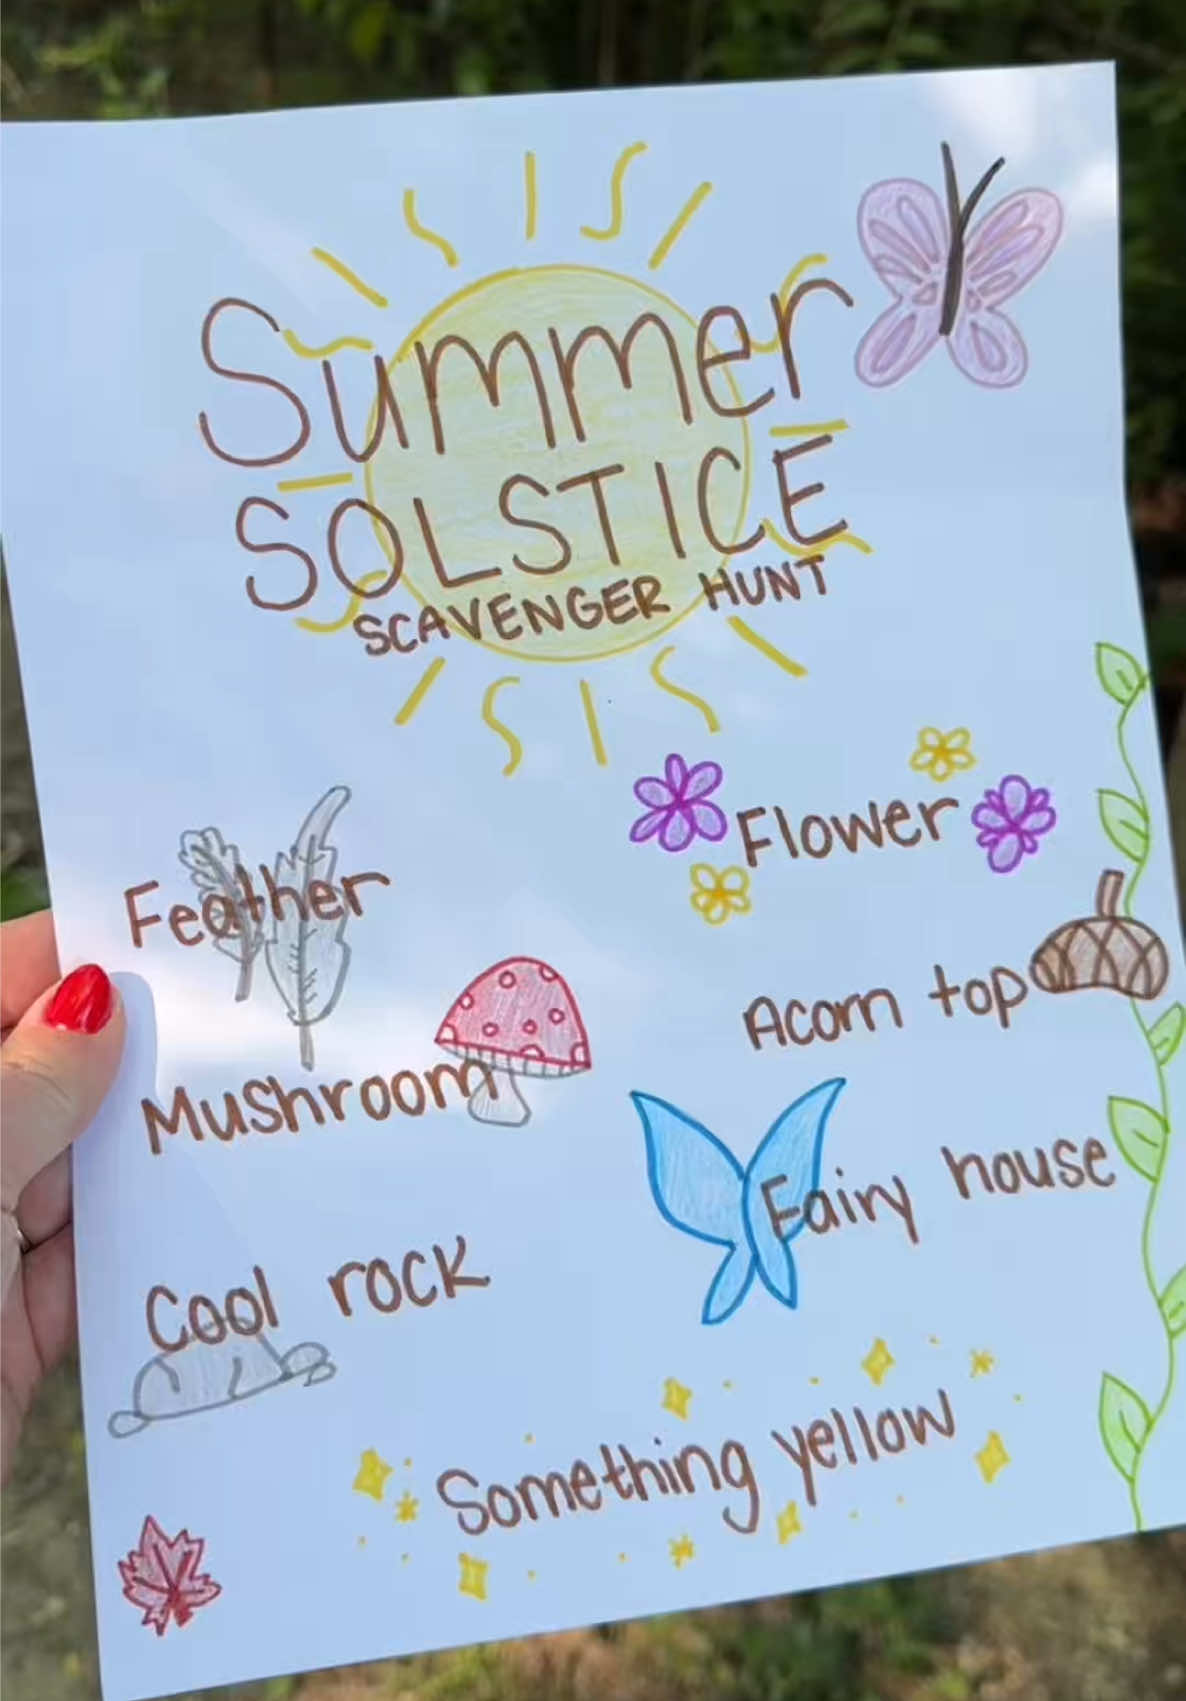 Summer
SOLSTICE
SCAVENGER HUNT
Flower
Feather
Acorn top
Mushroom
Fairy house
Cool rock
Something yellow